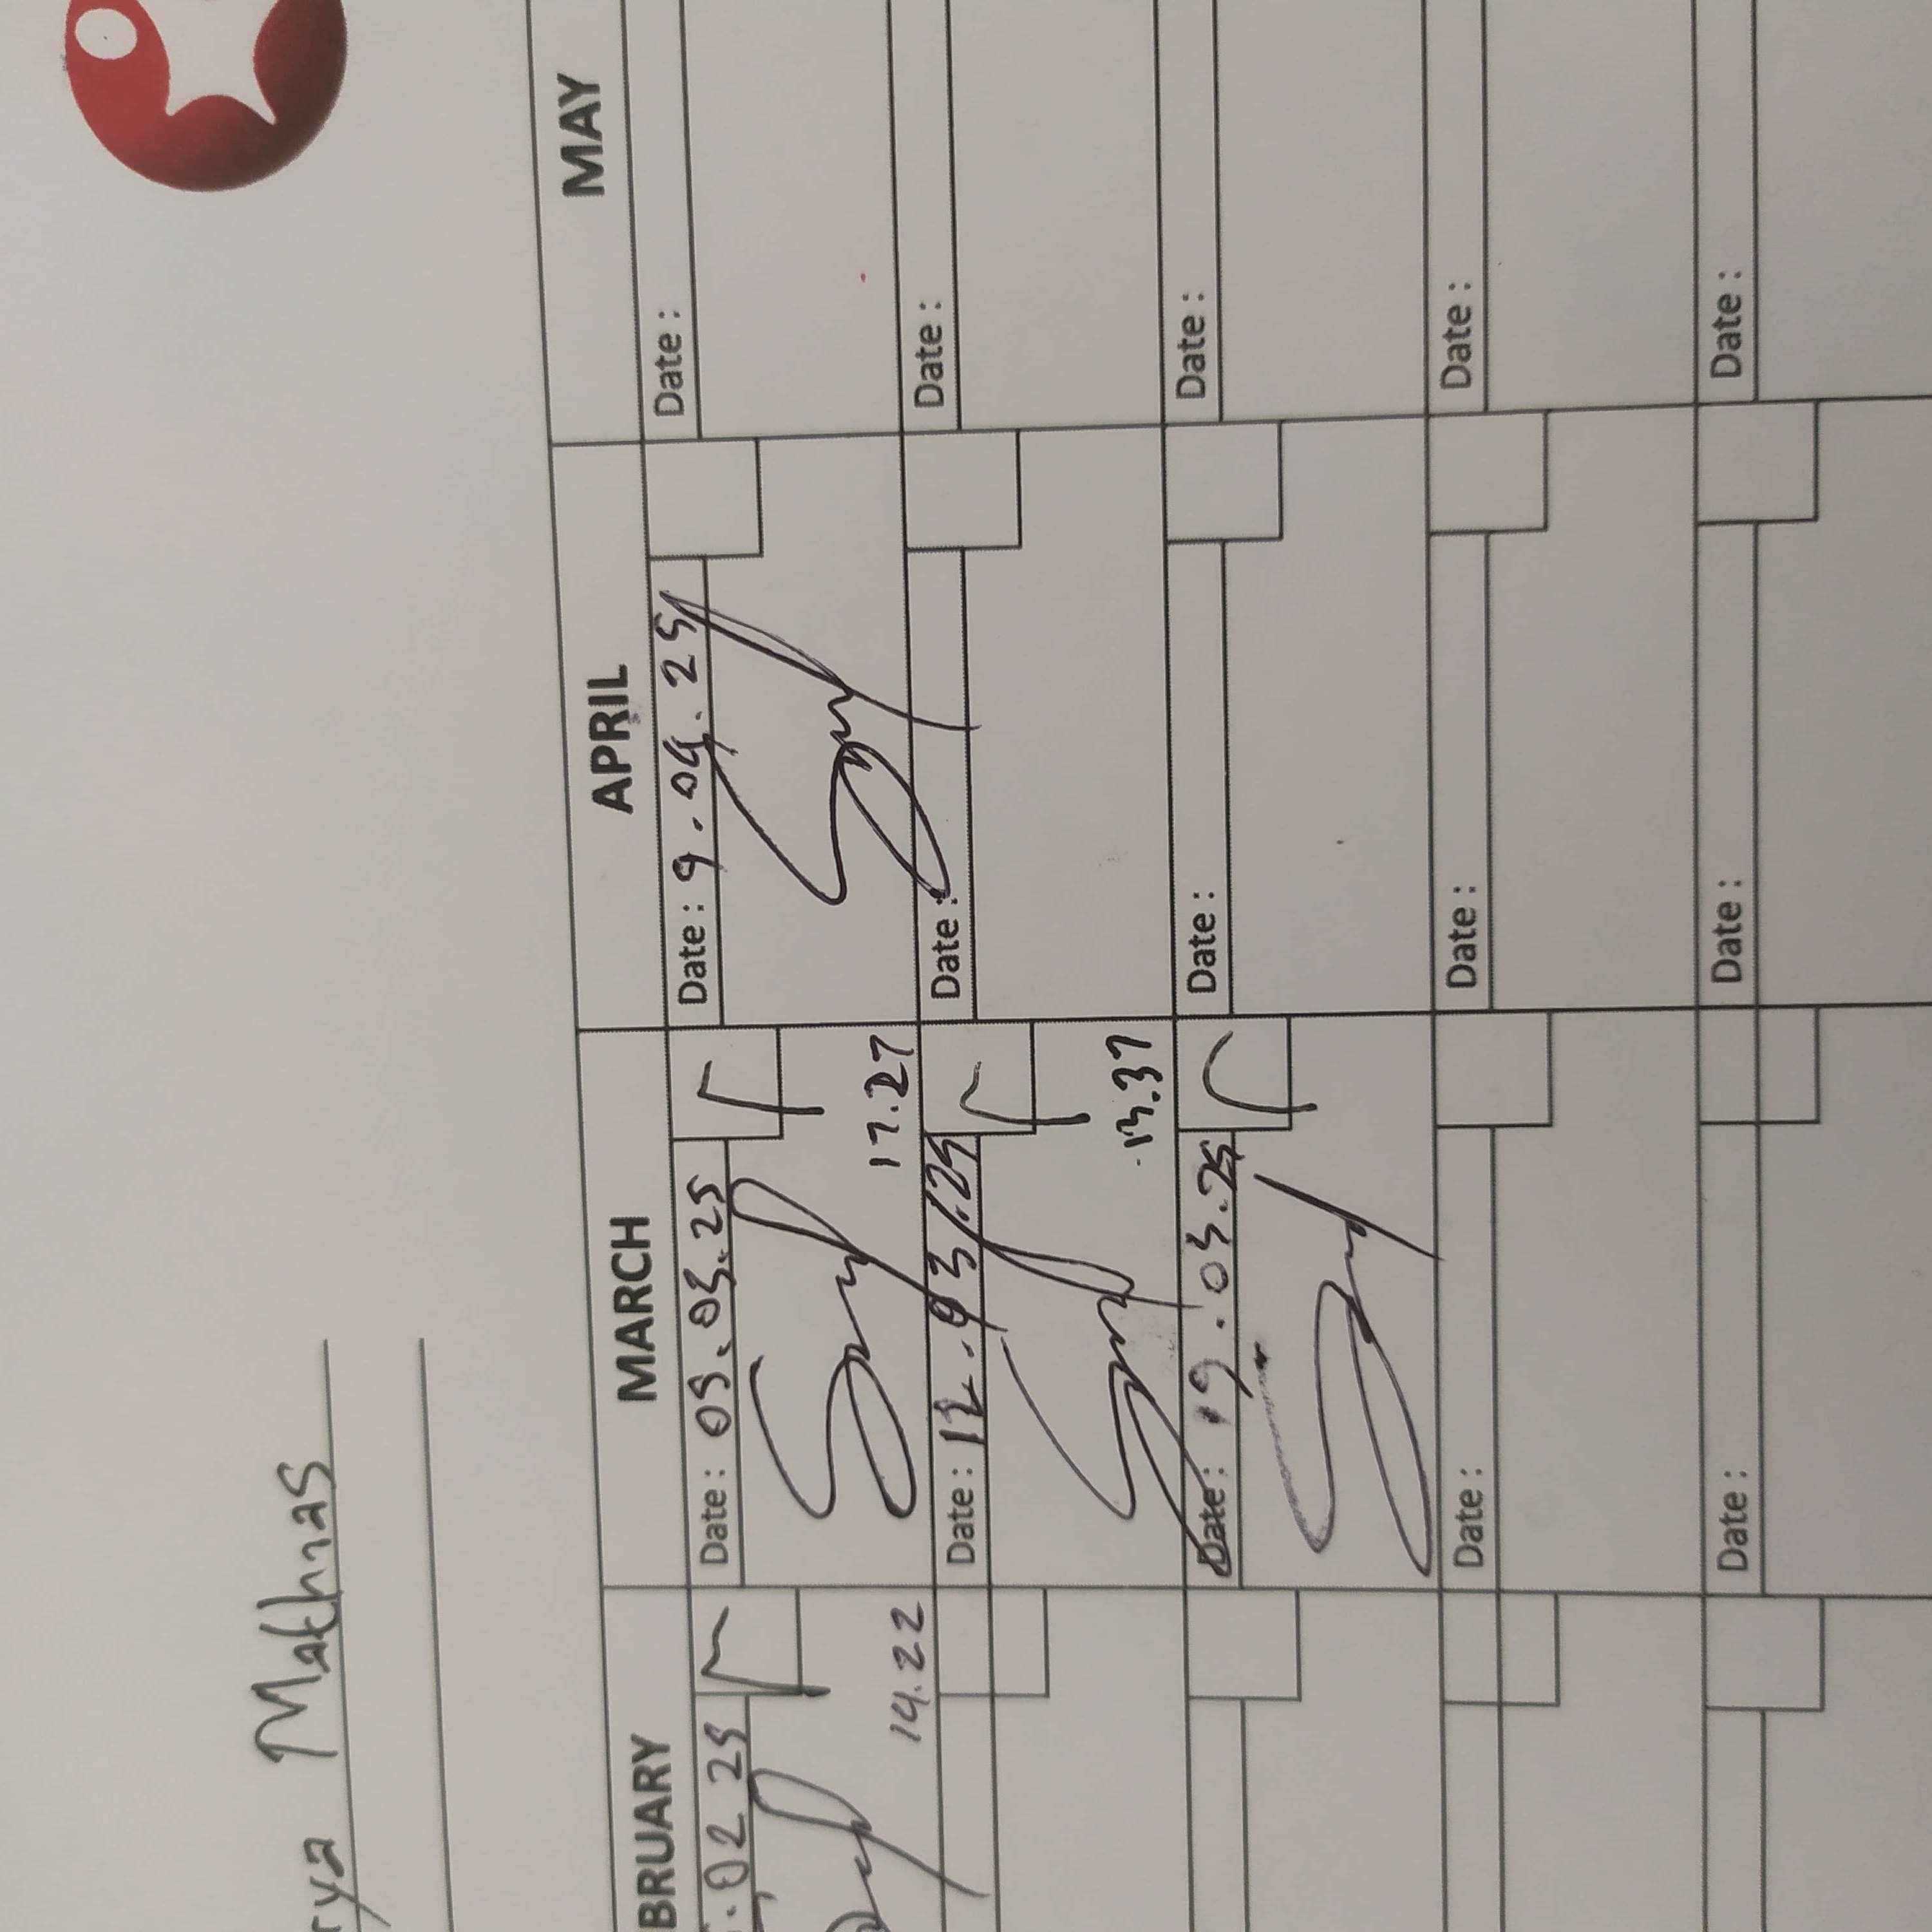 rya Mathnas
BRUARY MARCH APRIL MAY
.02 25 Date : 05.03.25 Date : 9.04.25 Date :
14.22 17.27
Date : 12.03/25 Date : Date :
13.37
Date : 19.03.25 Date : Date :
Date : Date : Date :
Date : Date : Date :